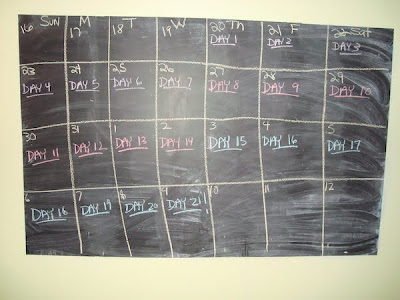 16 SUN 17 M 18 T 19 W 20 Th 21 F 22 Sat
DAY 1 DAY 2 DAY 3
23 24 25 26 27 28 29
DAY 4 DAY 5 DAY 6 DAY 7 DAY 8 DAY 9 DAY 10
30 31 1 2 3 4 5
DAY 11 DAY 12 DAY 13 DAY 14 DAY 15 DAY 16 DAY 17
6 7 8 9 10 11 12
DAY 18 DAY 19 DAY 20 DAY 21!!